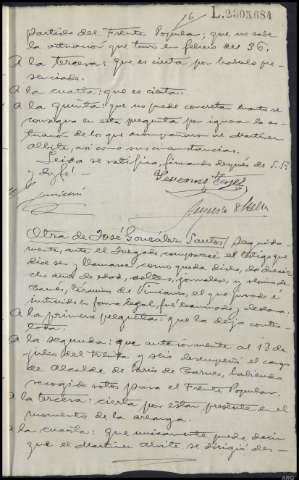 16
L.2303.684
partido del Frente Popular; que no sabe
la votación que tuvo en febrero del 36.
A la tercera: que es cierta por haberlo pre-
senciado.
A la cuarta: que es cierta.
A la quinta: que no puede concretar cuanto se
consigna en esta pregunta por ignorar la ac-
tuación de los que acompañaron al Martínez
Alvite, así como sus circunstancias.
Leida se ratifica, firmando después de S.S.
y doy fé.
Otra de José González Santos / Seguida-
mente, ante el Juzgado comparece el testigo que
dice ser y llamarse como queda dicho, de dieci-
ocho años de edad, soltero, jornalero, y vecino de
término de Vimianzo, el que jurado e
instruido en forma legal, fué examinado y declara.
A la primera pregunta: que la deja contes-
tada.
A la segunda: que anteriormente al 18 de
julio del treinta y seis desempeñó el cargo
de Alcalde de habiendo
recogido votos para el Frente Popular.
A la tercera: cierta por estar presente en el
momento de la arenga.
A la cuarta: que unicamente puede decir
que el Martínez Alvite se dirigió des-